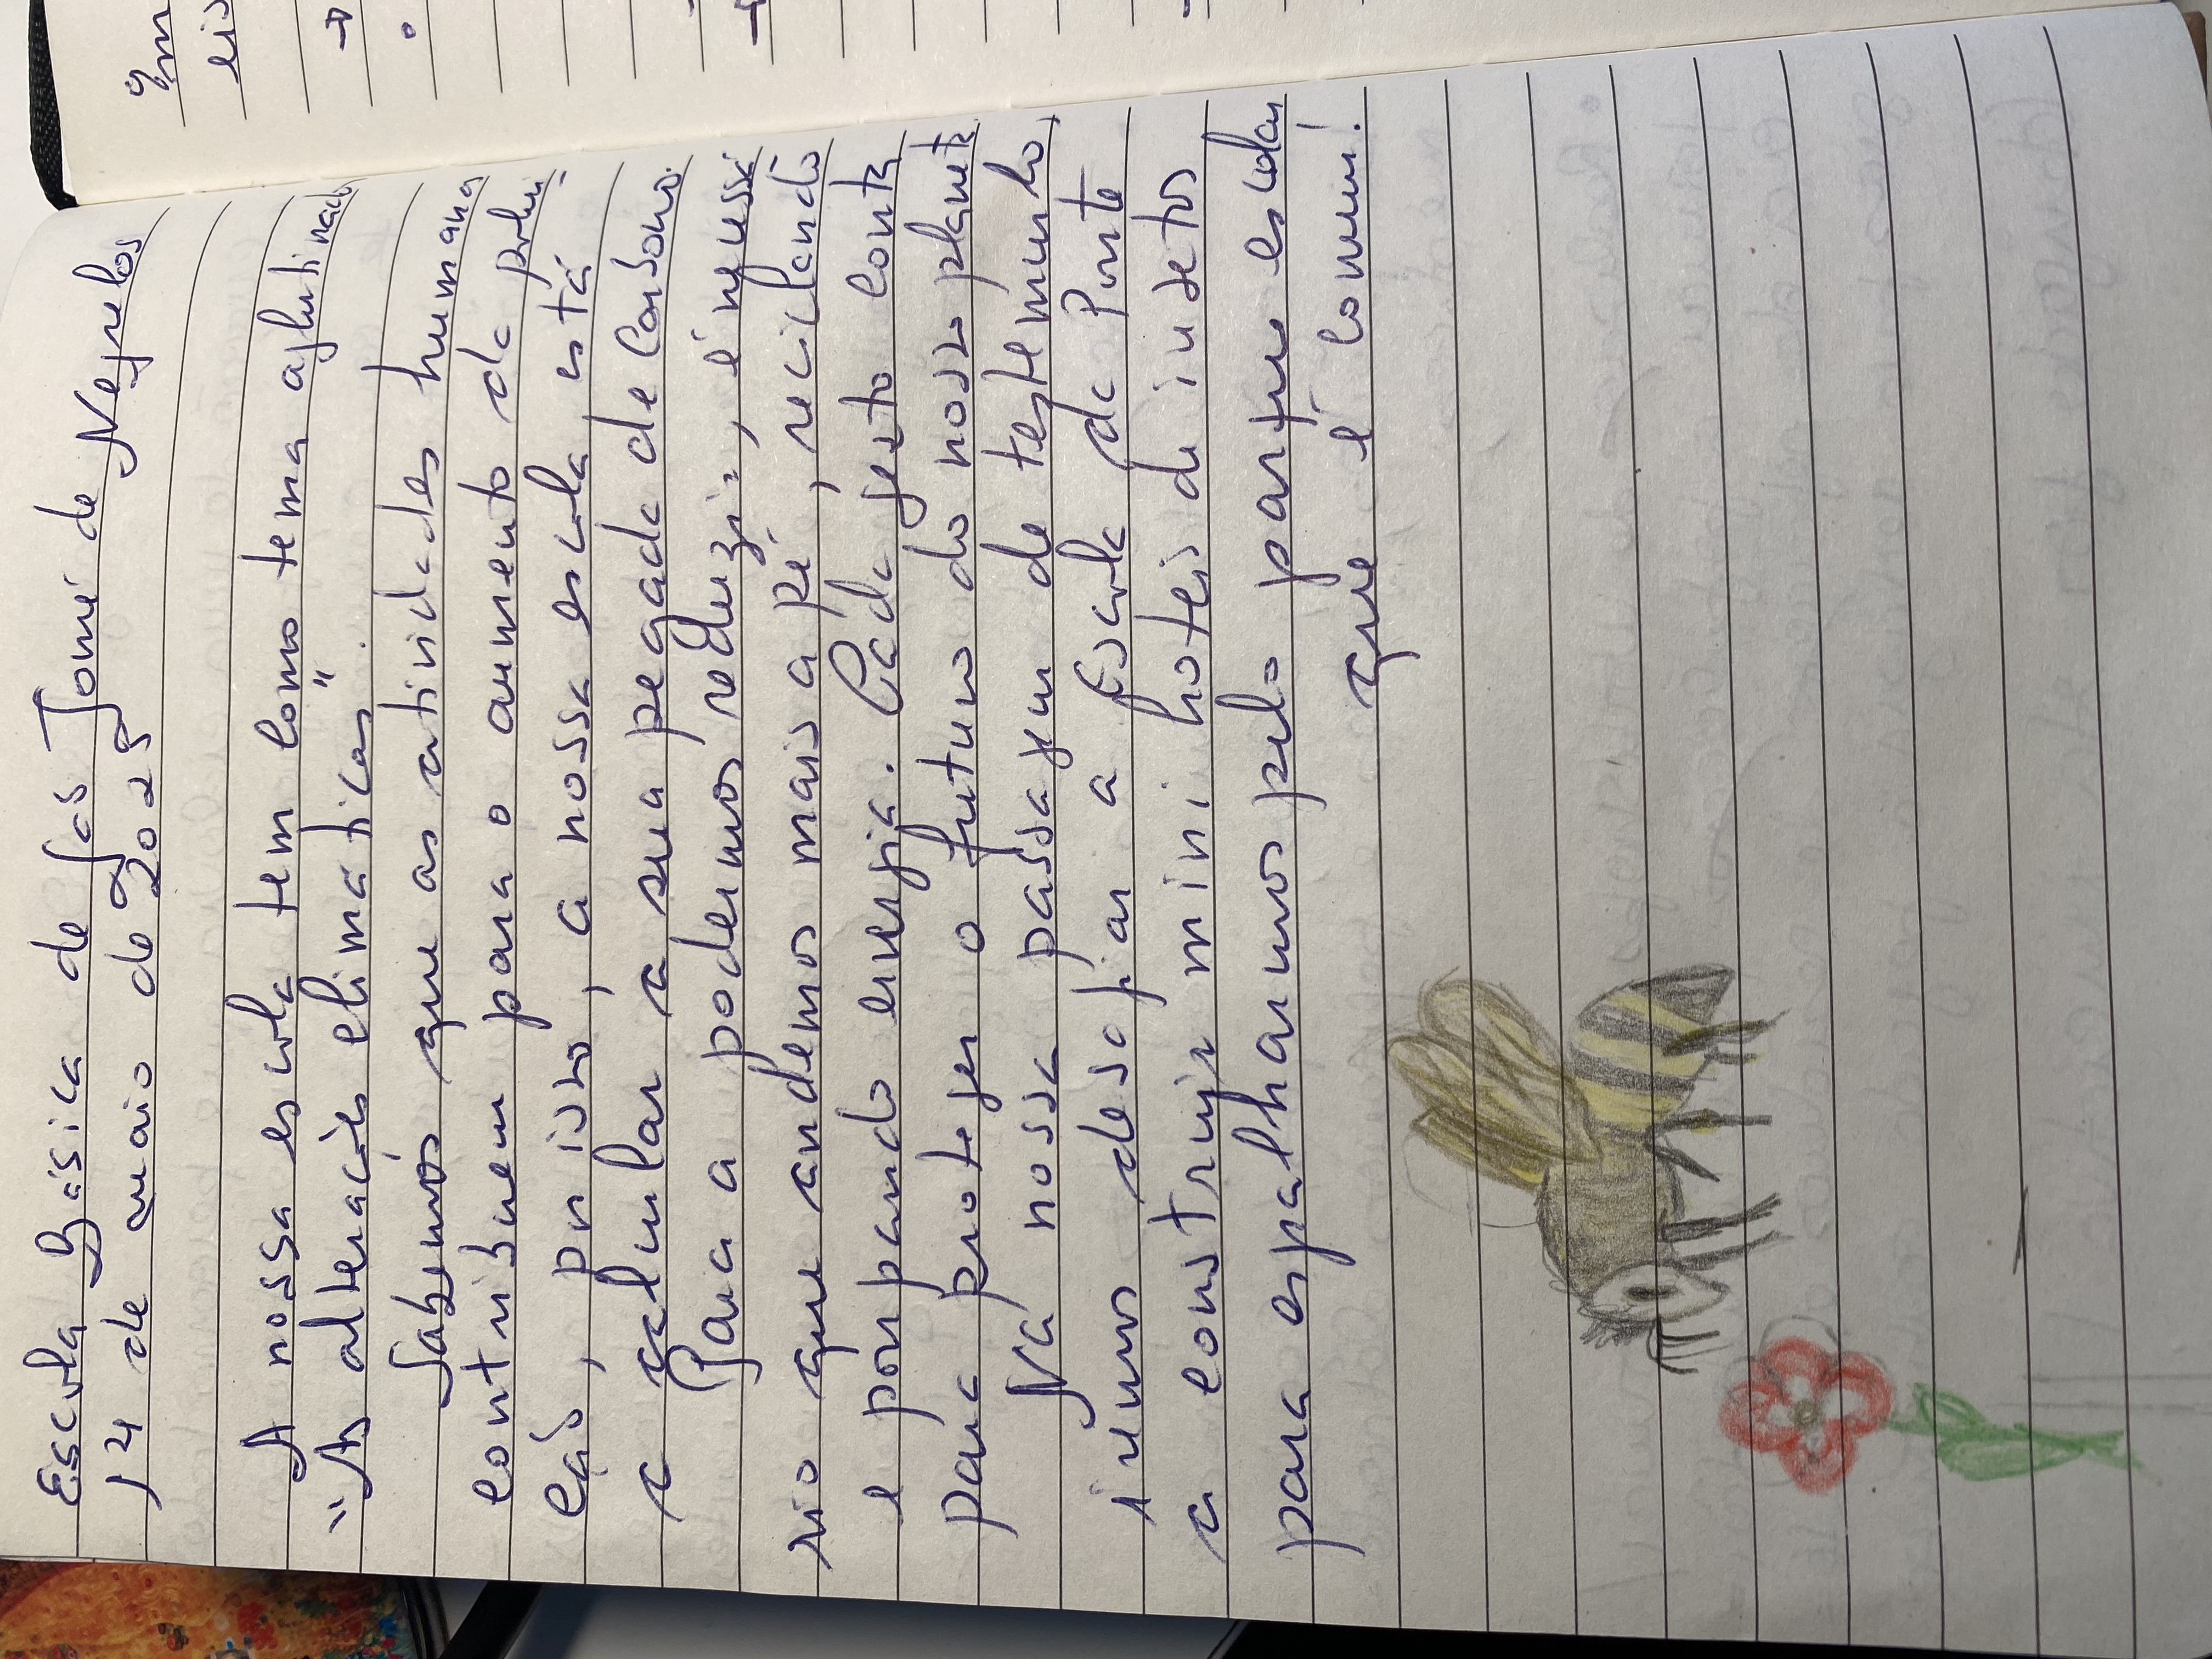 Escola Básica de São Tomé de Negrelos
14 de maio de 2025
A nossa escola tem como tema aglutinador
"As alterações climáticas".
Sabemos que as atividades humanas
contribuem para o aumento da polui-
ção, por isso, a nossa escola está
a calcular a sua pegada de carbono.
Para a podermos reduzir, é neces
sário que andemos mais a pé, reciclando
e poupando energia. Cada gesto conta
para proteger o futuro do nosso planeta
Na nossa passagem de testemunho,
iremos desafiar a Escola da Ponte
a construir mini hoteis de insetos
para espalharmos pelo parque escolar
que é comum!